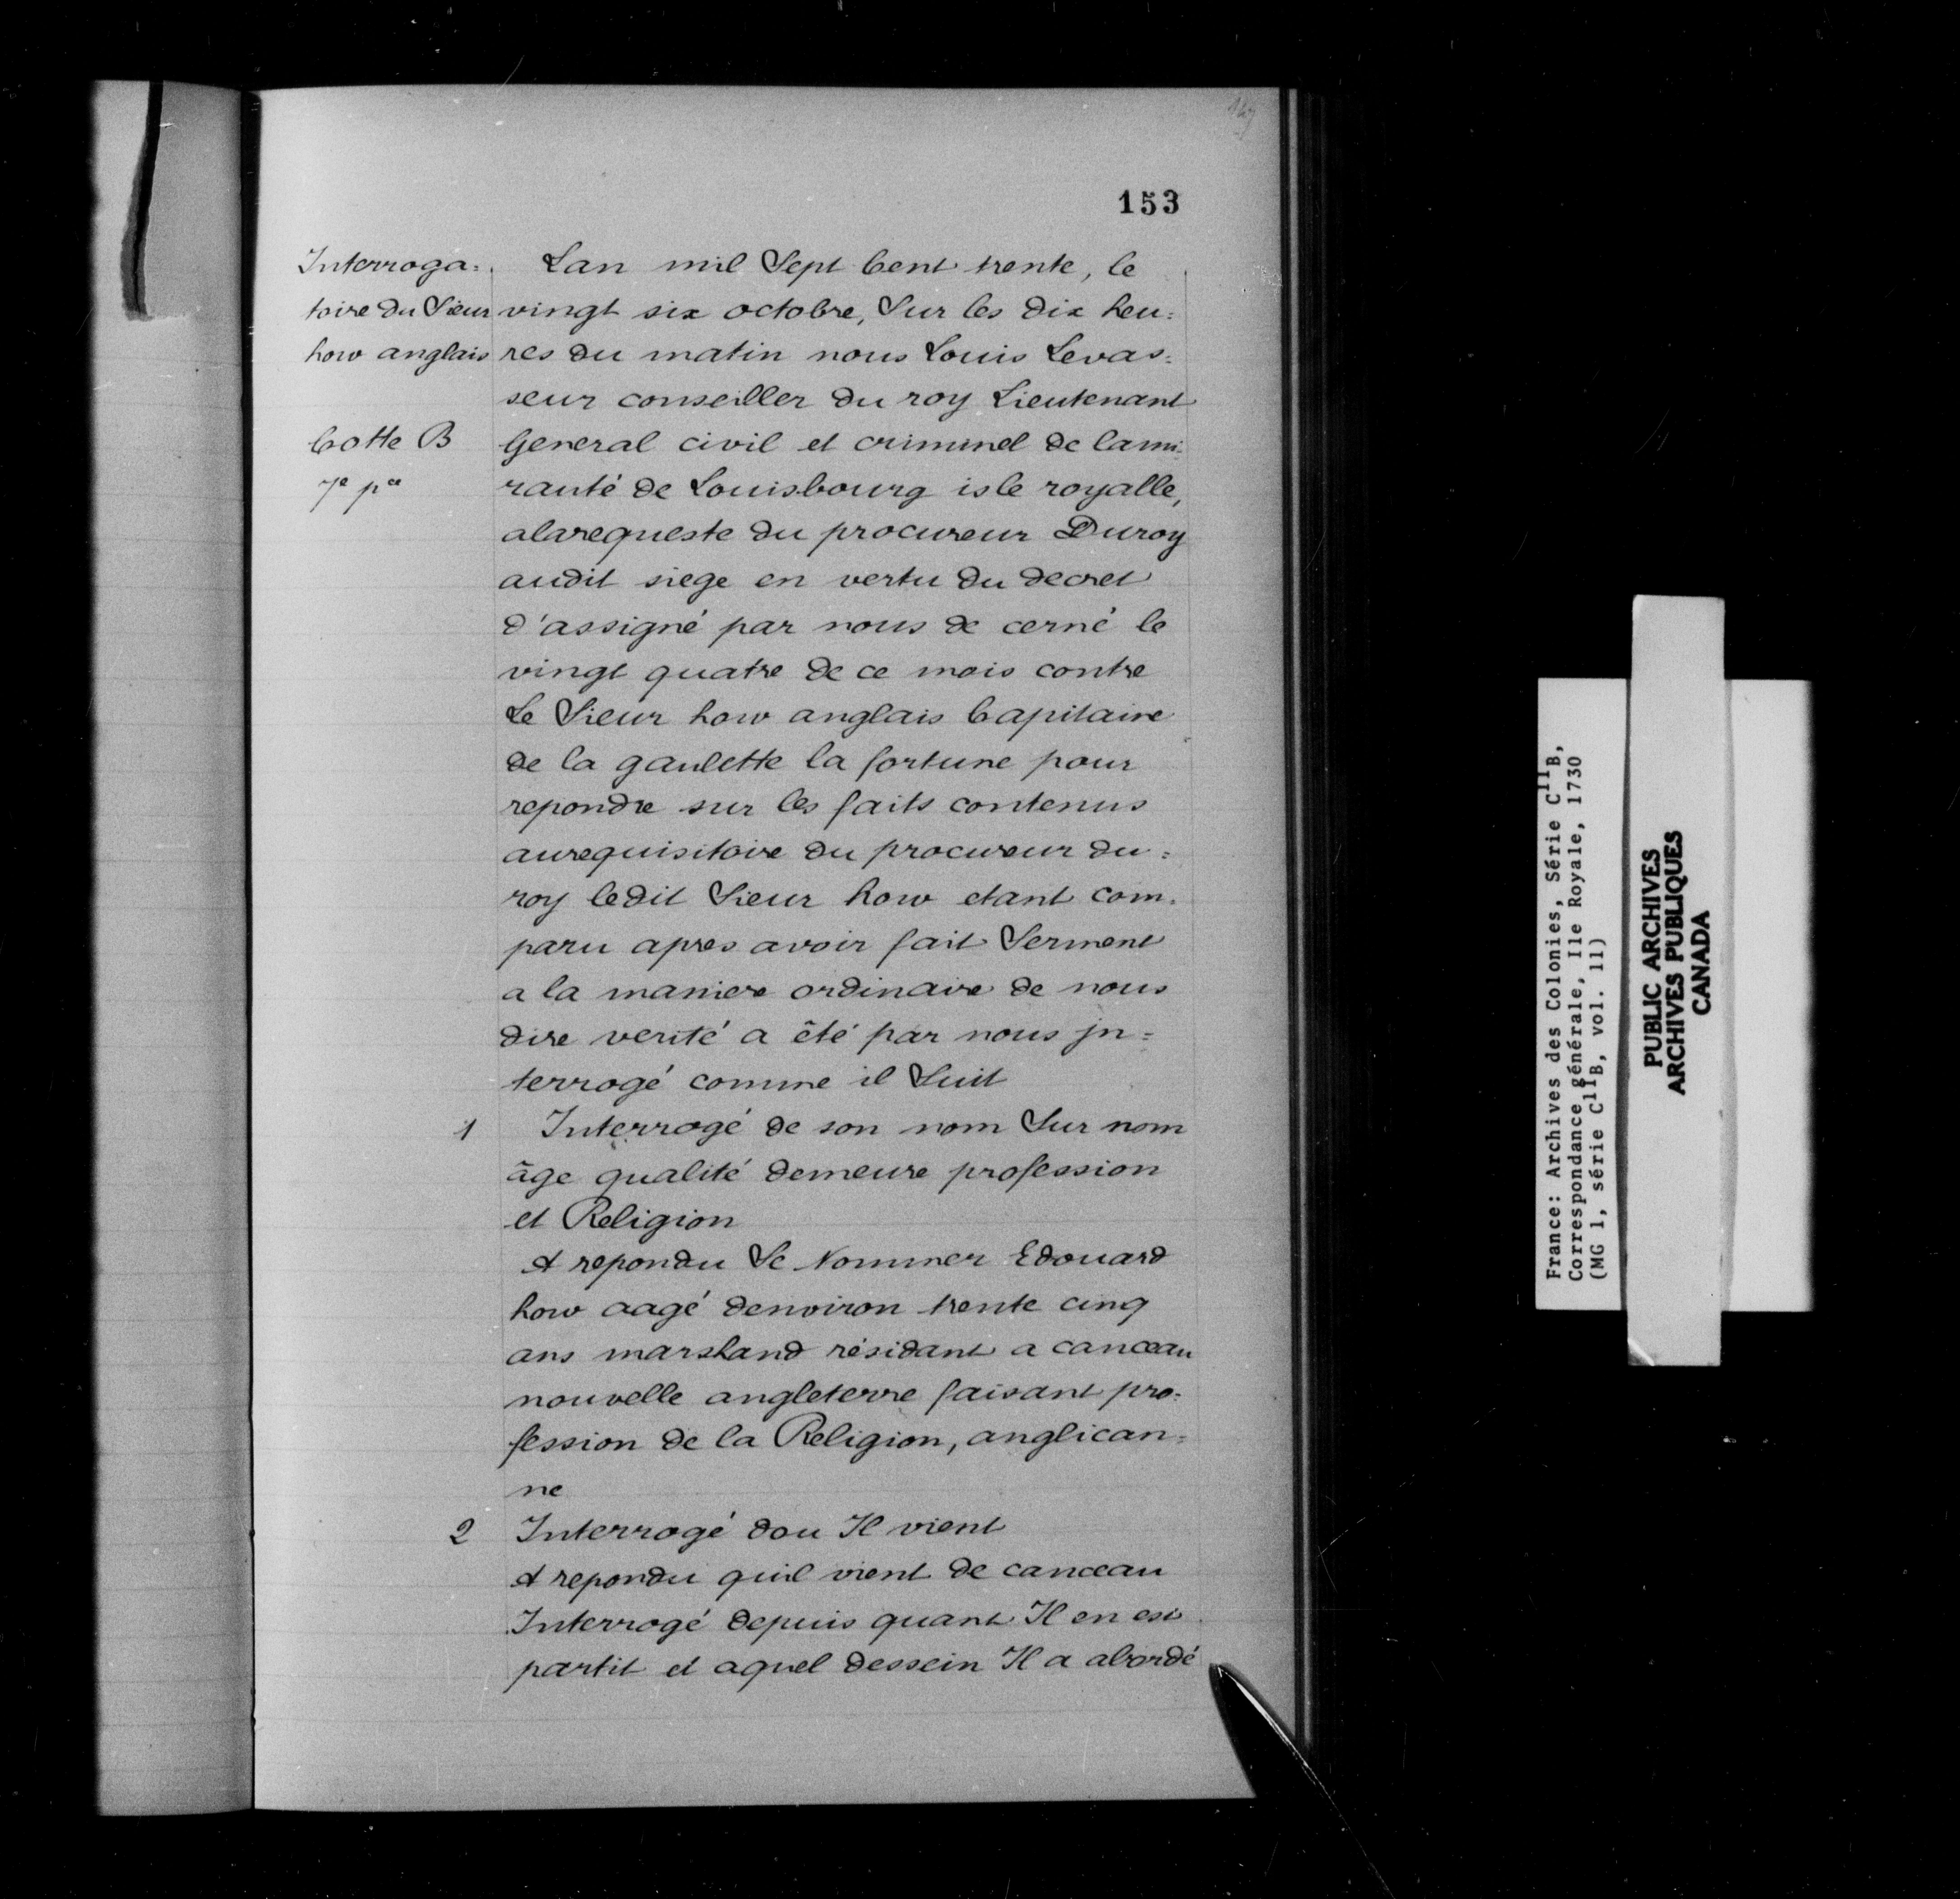 153
Interroga=
toire du Sieur
how anglais
Cotte B
7e pce
Lan mil Sept Cent trente, le
vingt six octobre, Sur les dix heu=
res du matin nous Louis Levas=
seur conseiller du roy Lieutenant
General civil et criminel de lami=
rauté de Louisbourg isle royalle,
alarequeste du procureur Duroy
audit siege en vertu du decret
d'assigné par nous de cerné le
vingt quatre de ce mois contre
Le Sieur how anglais Capitaine
de la gaulette la fortune pour
repondre sur les faits contenus
aurequisitoire du procureur du=
roy ledit Sieur how etant com=
paru apres avoir fait Serment
a la maniere ordinaire de nous
dire verité a êté par nous jn=
terrogé comme il Suit
1 Interrogé de son nom Sur nom
âge qualité demeure profession
et Religion
A repondu Se Nommer Edouard
how aagé denviron trente cinq
ans marshand résidant a canceau
nouvelle angleterre faisant pro=
fession de la Religion, anglican=
ne
2 Interrogé dou Il vient
A repondu quil vient de canceau
Interrogé depuis quant Il en est
partit et aquel dessein Il a abordé
France: Archives des Colonies, Série C11B,
Correspondance générale, Ile Royale, 1730
(MG 1, série C11B, vol. 11)
PUBLIC ARCHIVES
ARCHIVES PUBLIQUES
CANADA